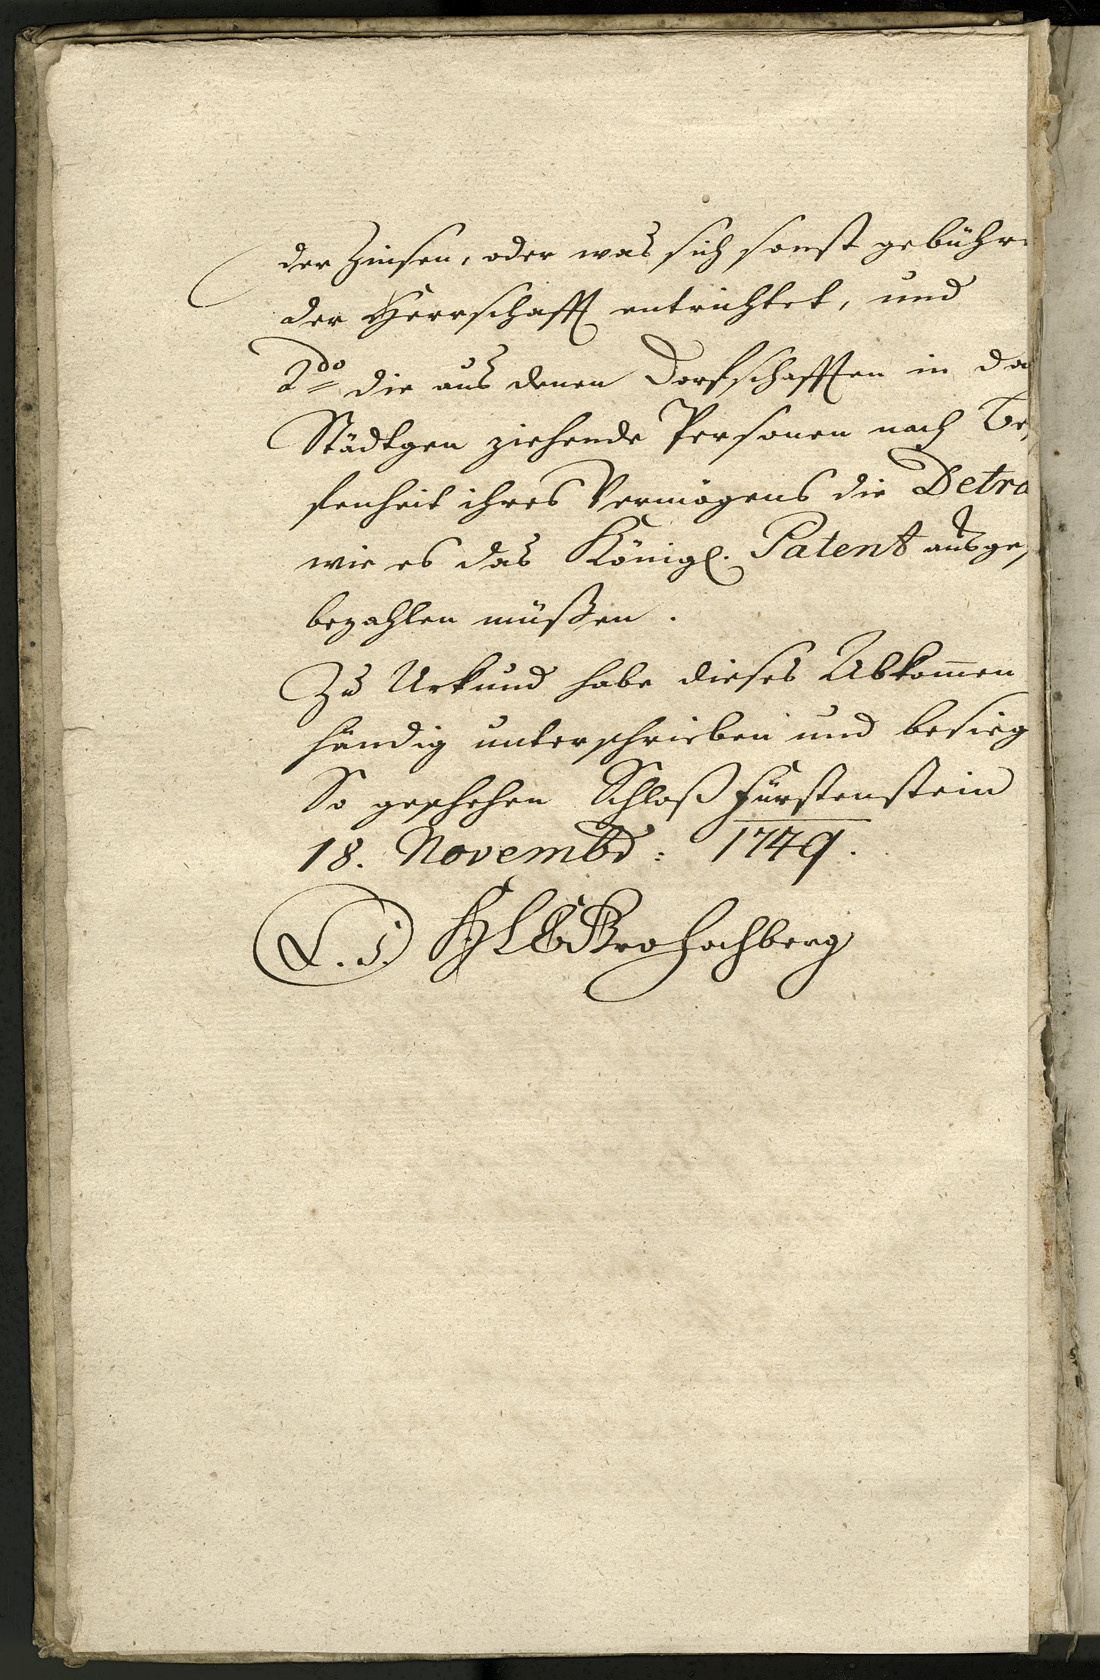 der Zinsen, oder was sich sonst gebühr
der Herrschafft entrichtet, und
2do die aus denen Dorfschafften in da
Städtgen ziehende Personen nach Be,
fenheit ihres Vermögens die Detra
wie es das Königl. Patent ausge,
bezahlen müßen.
Zu Urkund habe dieses Abkom̅en
händig unterschrieben und besieg
So geschehen Schloß Fürstenstein
18. Novembr: 1749.
L. S. Hochberg